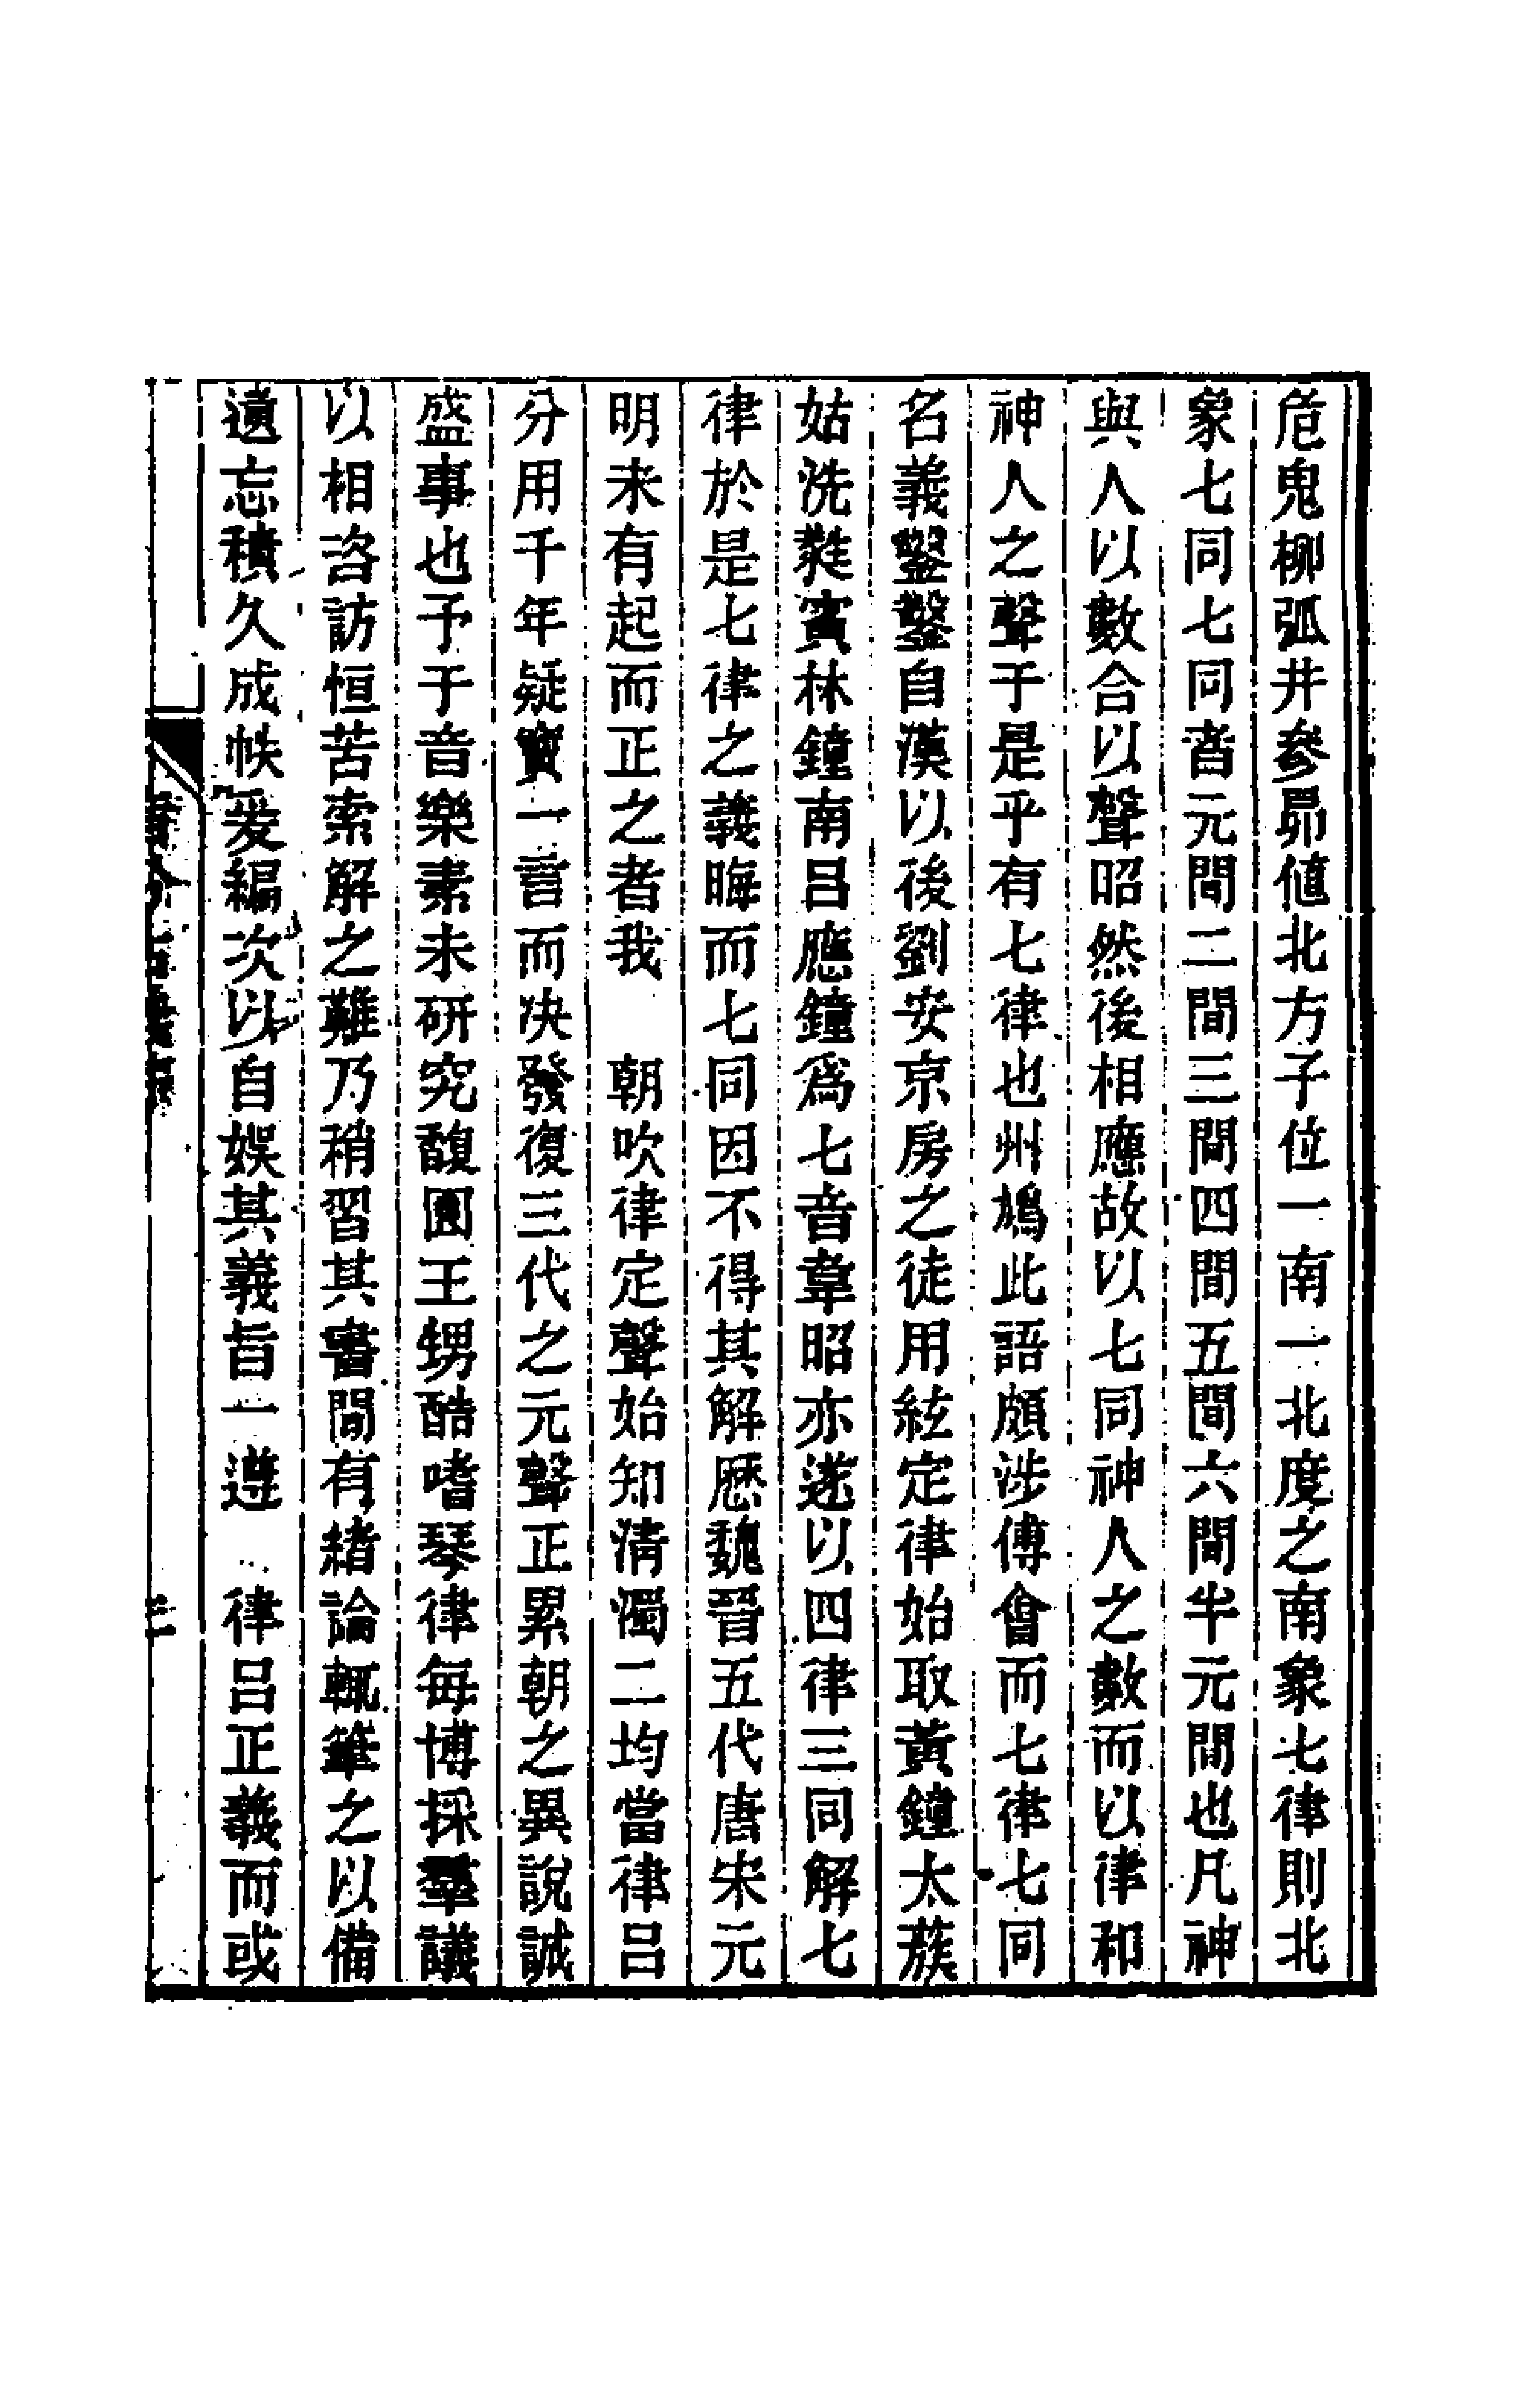 危鬼柳弧井參昴値北方子位一南一北度之南象七律則北
象七同七同者元間二間三間四間五間六間半元間也凡神
與人以數合以聲昭然後相應故以七同神人之數而以律和
神人之聲于是乎有七律也州鳩此語頗涉傅會而七律七同
名義鑿鑿自漢以後劉安京房之徒用絃定律始取黃鐘太蔟
姑洗蕤賓林鐘南呂應鐘爲七音韋昭亦遂以四律三同解七
律於是七律之義晦而七同因不得其解歷魏晉五代唐宋元
明未有起而正之者我　朝吹律定聲始知淸濁二均當律呂
分用千年疑竇一言而決發復三代之元聲正累朝之異說誠
盛事也予于音樂素未硏究馥園王甥酷嗜琴律每博採羣議
以相咨訪恒苦索解之難乃稍習其書間有緒論輒筆之以備
遺忘積久成帙爰編次以自娛其義旨一遵　律呂正義而或